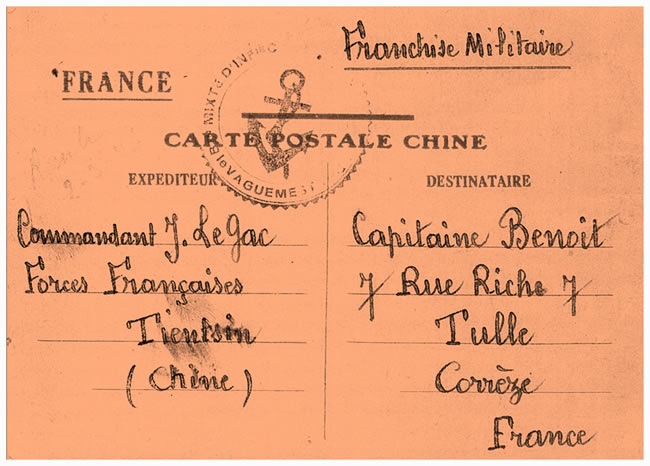 Franchise Militaire
FRANCE
MIXTE D'INF
CARTE POSTALE CHINE
VAGUEMEST
EXPEDITEUR
Commandant J. Le Gac
Forces Françaises
Tientsin
(Chine)
DESTINATAIRE
Capitaine Benoit
7 Rue Riche 7
Tulle
Corrèze
France